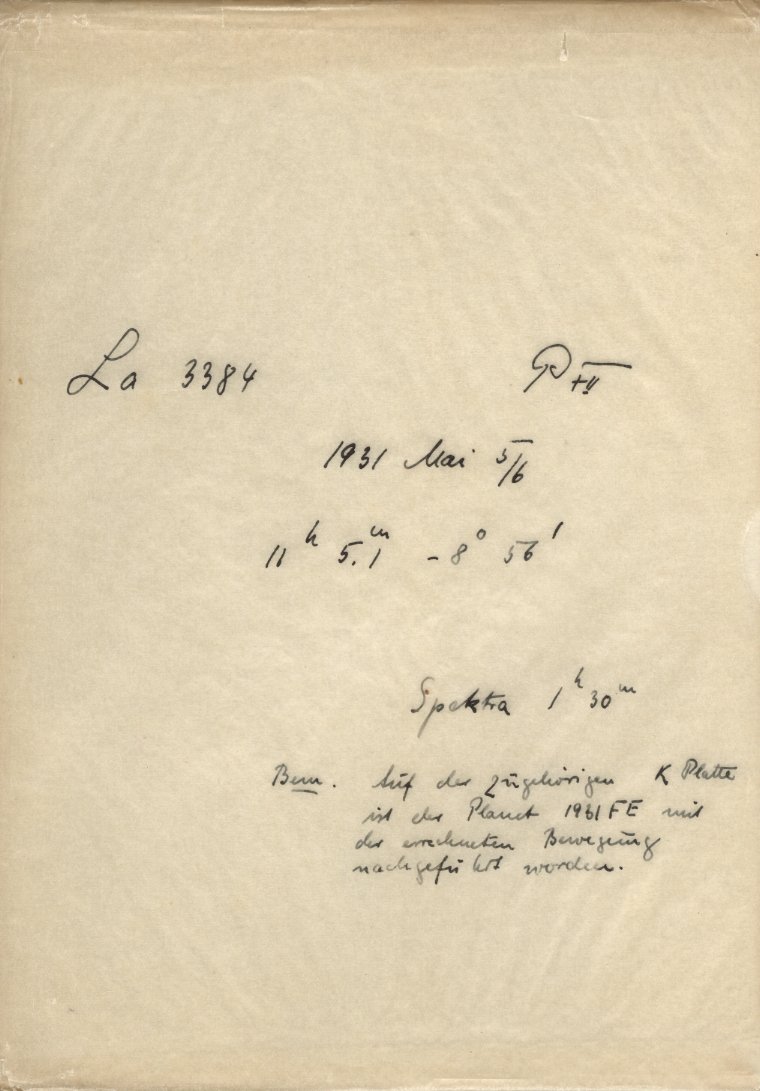 La 3384
1931 Mai 5/6
11ʰ 5.1ᵐ – 8° 56'
Spektra 1ʰ 30ᵐ
Bem. Auf der zugehörigen K Platte
ist der Planet 1931 FE mit
der errechneten Bewegung
nachgeführt worden.